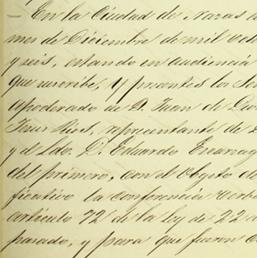 En la Ciudad de Nazas a
mes de Diciembre de mil och
y seis, estando en audiencia
que suscribe, y presentes los Señ
apoderado de D. Juan de Dios
representante de
y el Ldo. D. Eduardo
del primero, con el objeto de
la conferencia verba
artículo 72 de la ley de 22 d
pasado, y para que fueron c